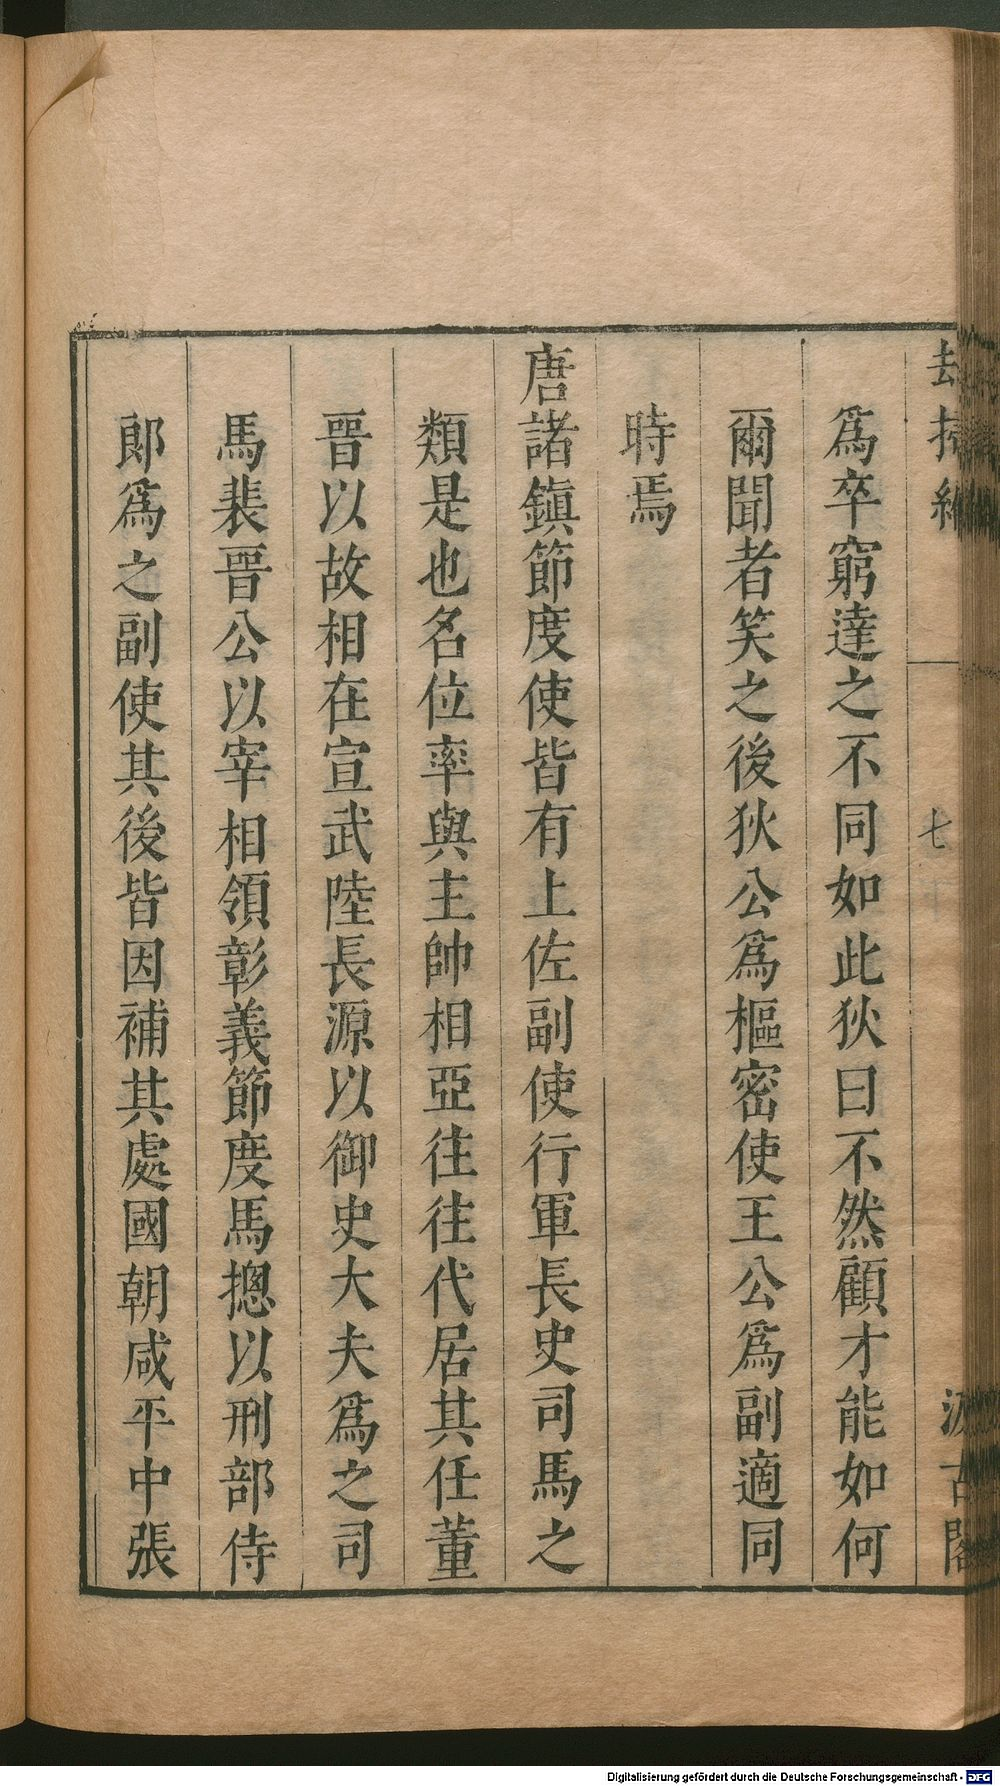 去掃編
七
汲古閣
爲卒窮達之不同如此狄曰不然顧才能如何
爾聞者笑之後狄公爲樞密使王公爲副適同
時焉
唐諸鎮節度使皆有上佐副使行軍長史司馬之
類是也名位率與主帥相亞往往代居其任董
晉以故相在宣武陸長源以御史大夫爲之司
馬裴晉公以宰相領彰義節度馬摠以刑部侍
郎爲之副使其後皆因補其處國朝咸平中張
Digitalisierung gefördert durch die Deutsche Forschungsgemeinschaft - DFG